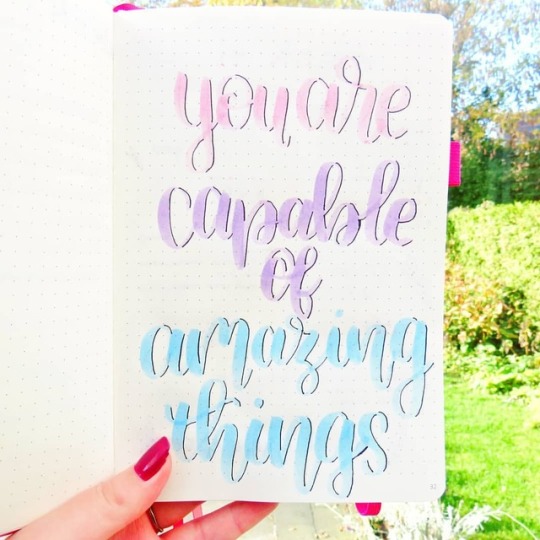 you are
capable
of
amazing
things